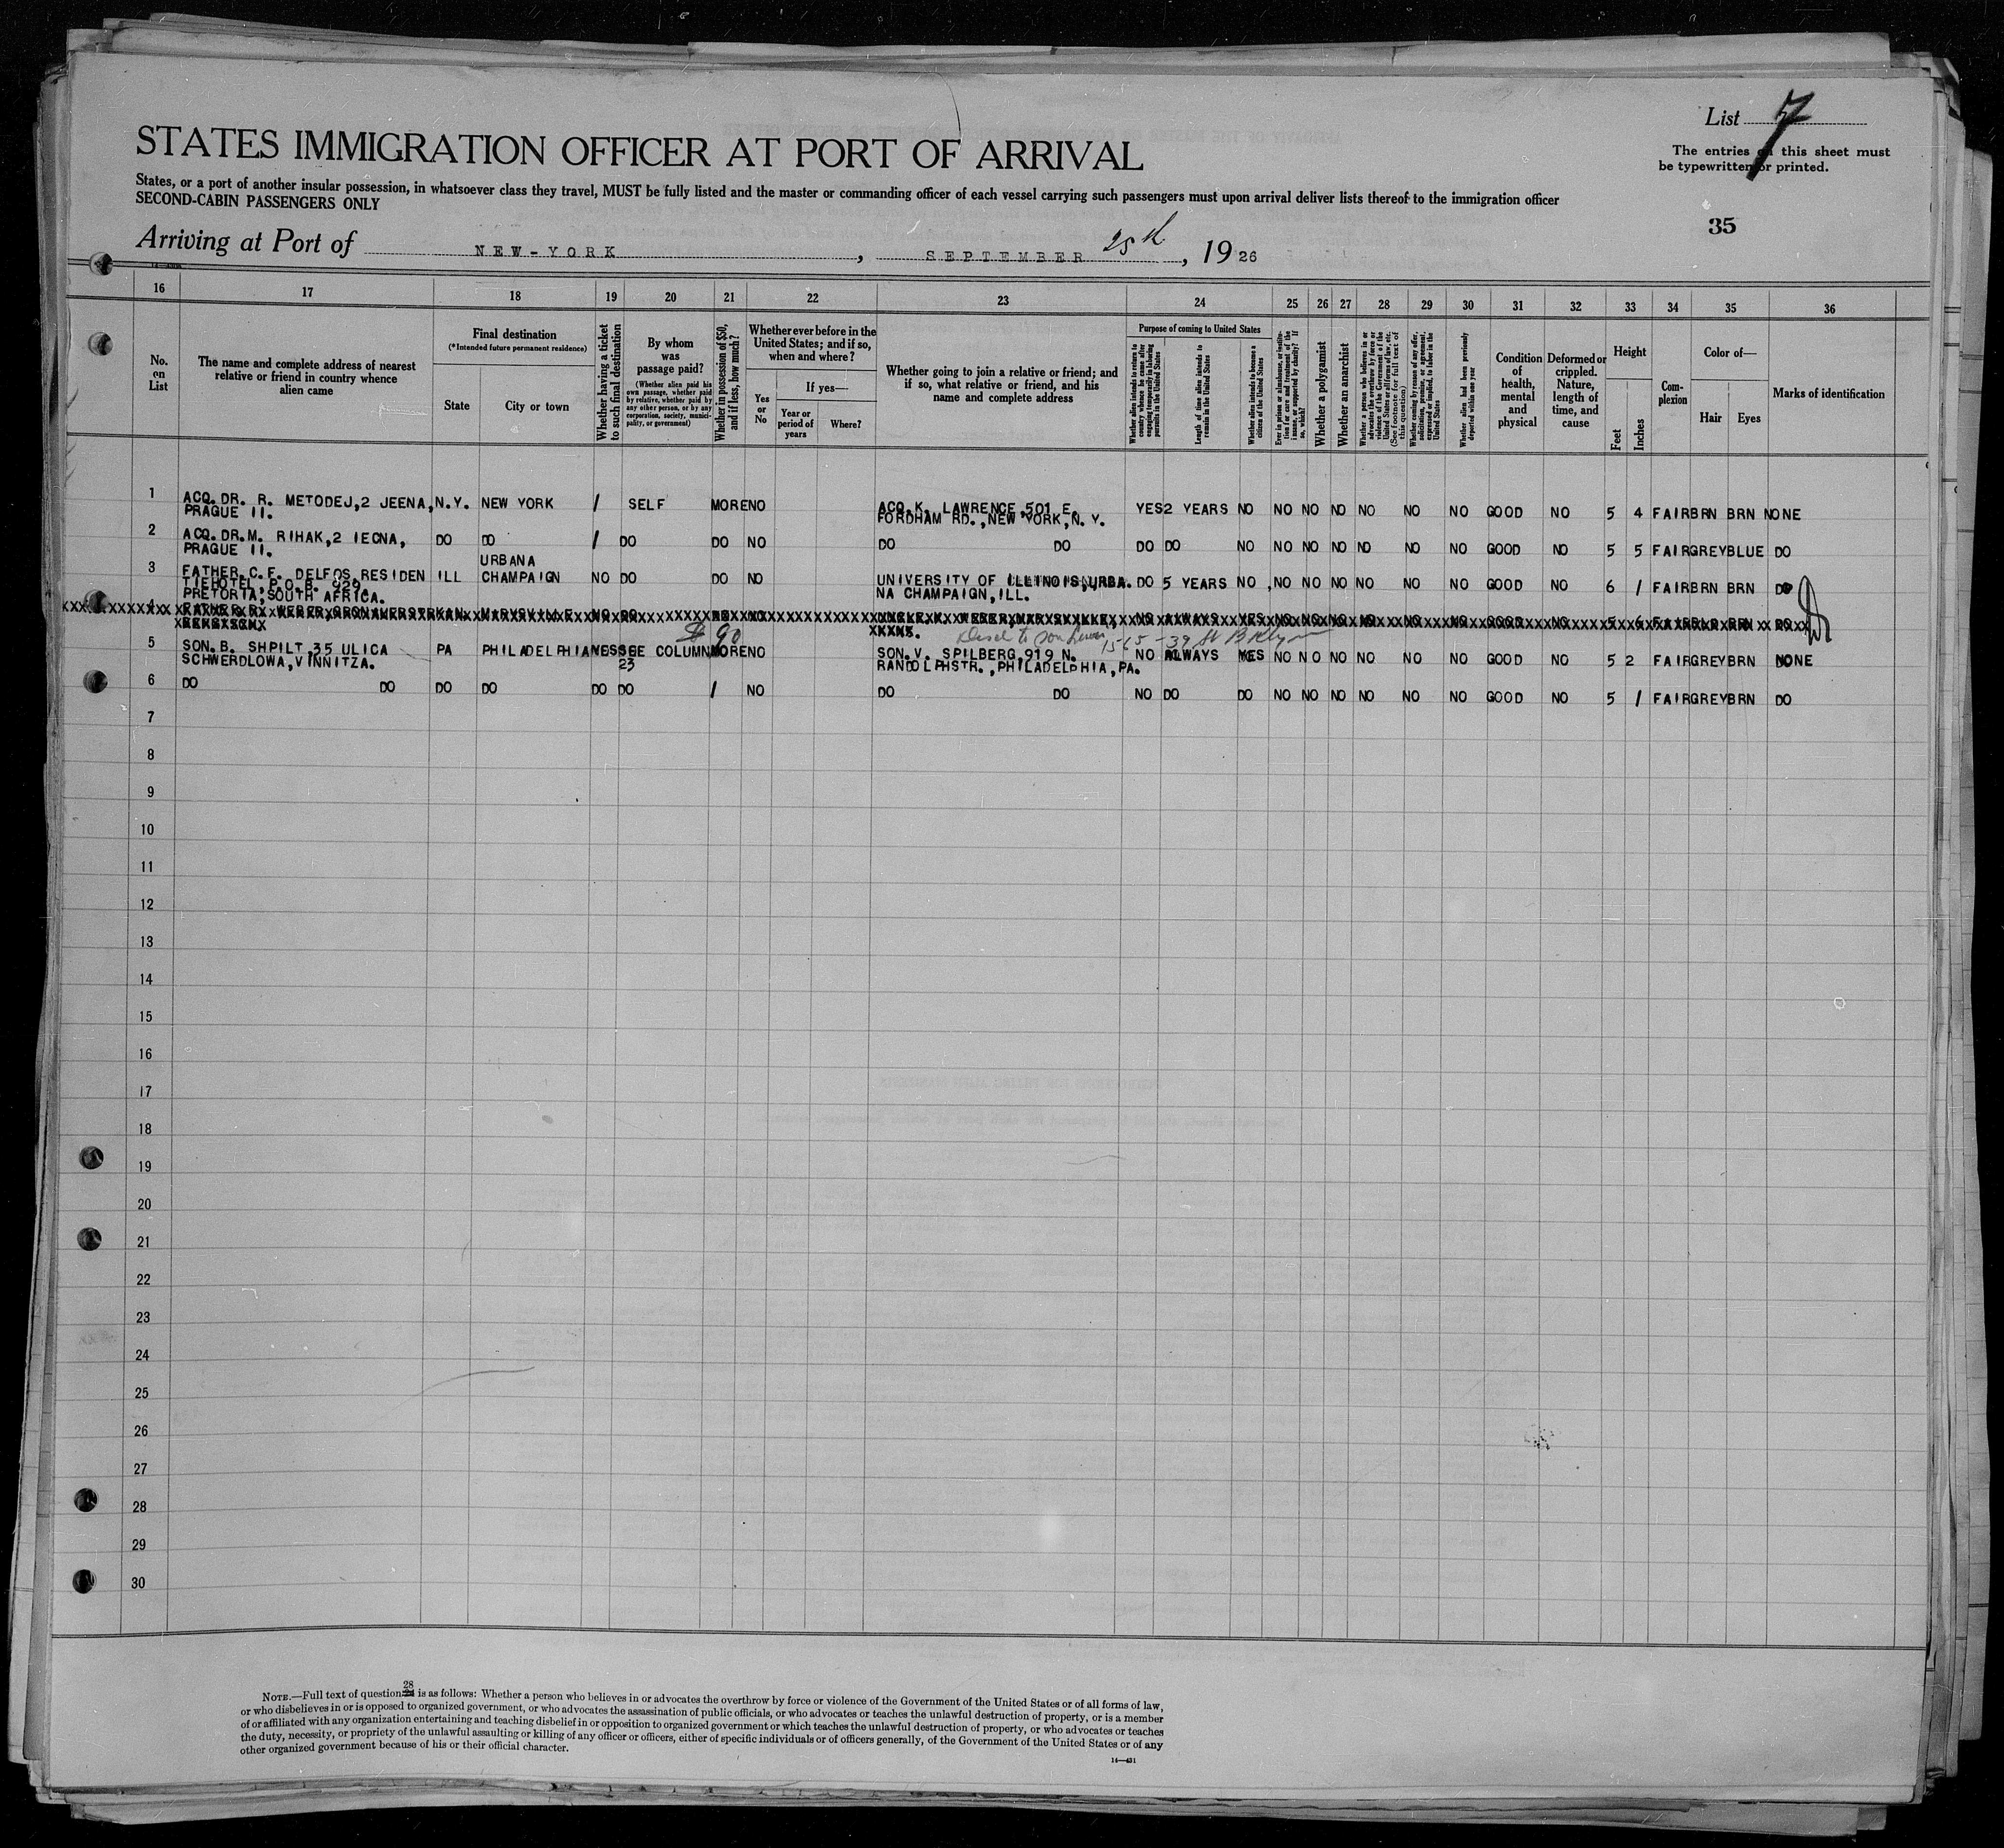 List 7
STATES IMMIGRATION OFFICER AT PORT OF ARRIVAL
The entries on this sheet must
be typewritten or printed.
States, or a port of another insular possession, in whatsoever class they travel, MUST be fully listed and the master or commanding officer of each vessel carrying such passengers must upon arrival deliver lists thereof to the immigration officer
SECOND-CABIN PASSENGERS ONLY
35
Arriving at Port of NEW-YORK, SEPTEMBER 25th, 1926
16 17 18 19 20 21 22 23 24 25 26 27 28 29 30 31 32 33 34 35 36
No. on List
The name and complete address of nearest relative or friend in country whence alien came
Final destination
(*Intended future permanent residence)
State
City or town
Whether having a ticket to such final destination
By whom was passage paid?
(Whether alien paid his own passage, whether paid by relative, whether paid by any other person, or by any corporation, society, municipality, or government)
Whether in possession of $50, and if less, how much?
Whether ever before in the United States; and if so, when and where?
Yes or No
If yes—
Year or period of years
Where?
Whether going to join a relative or friend; and if so, what relative or friend, and his name and complete address
Purpose of coming to United States
Whether alien intends to return to country whence he came after engaging temporarily in laboring pursuits in the United States
Length of time alien intends to remain in the United States
Whether alien intends to become a citizen of the United States
Ever in prison or almshouse, or institution for care and treatment of the insane, or supported by charity? If so, which?
Whether a polygamist
Whether an anarchist
Whether a person who believes in or advocates the overthrow by force or violence of the Government of the United States or all forms of law, etc. (See footnote for full text of this question)
Whether coming by reason of any offer, solicitation, promise, or agreement, expressed or implied, to labor in the United States
Whether alien had been previously deported within one year
Condition of health, mental and physical
Deformed or crippled. Nature, length of time, and cause
Height
Feet
Inches
Complexion
Color of—
Hair
Eyes
Marks of identification
1 ACQ. DR. R. METODEJ,2 JEENA, N.Y. NEW YORK / SELF MORE NO ACQ.K. LAWRENCE,501 E. YES 2 YEARS NO NO NO NO NO NO NO GOOD NO 5 4 FAIR BRN BRN NONE
PRAGUE II. FORDHAM RD.,NEW YORK,N.Y.
2 ACQ. DR.M. RIHAK,2 IECNA, DO DO / DO DO NO DO DO DO DO NO NO NO NO NO NO NO GOOD NO 5 5 FAIR GREY BLUE DO
PRAGUE II.
URBANA
3 FATHER.C.F. DELFOS,RESIDEN ILL CHAMPAIGN NO DO DO NO UNIVERSITY OF ILLINOIS,URBA. DO 5 YEARS NO NO NO NO NO NO NO GOOD NO 6 1 FAIR BRN BRN DO
TIEHOTEL P.O.B. NA CHAMPAIGN,ILL.
PRETORIA,SOUTH AFRICA.
4 FATHER R. WEBER KAN. MARYSVILLE NO DO NO UNCLE WEBER,MARYSVILLE, NO ALWAYS YES NO NO NO NO NO NO GOOD NO 5 6 FAIR BRN DO
$ 90 to son 1565-39 St Bklyn
5 SON.B. SHPILT,35 ULICA PA PHILADELPHIA YES SEE COLUMN MORE NO SON.V. SPILBERG,919 N. NO ALWAYS YES NO NO NO NO NO NO GOOD NO 5 2 FAIR GREY BRN NONE
SCHWERDLOWA,VINNITZA. 23 RANDOLPHSTR.,PHILADELPHIA,PA.
6 DO DO DO DO DO DO / NO DO DO NO DO DO NO NO NO NO NO NO GOOD NO 5 1 FAIR GREY BRN DO
7
8
9
10
11
12
13
14
15
16
17
18
19
20
21
22
23
24
25
26
27
28
29
30
28
NOTE.—Full text of question is as follows: Whether a person who believes in or advocates the overthrow by force or violence of the Government of the United States or of all forms of law,
or who disbelieves in or is opposed to organized government, or who advocates the assassination of public officials, or who advocates or teaches the unlawful destruction of property, or is a member
of or affiliated with any organization entertaining and teaching disbelief in or opposition to organized government or which teaches the unlawful destruction of property, or who advocates or teaches
the duty, necessity, or propriety of the unlawful assaulting or killing of any officer or officers, either of specific individuals or of officers generally, of the Government of the United States or of any
other organized government because of his or their official character.
14—431